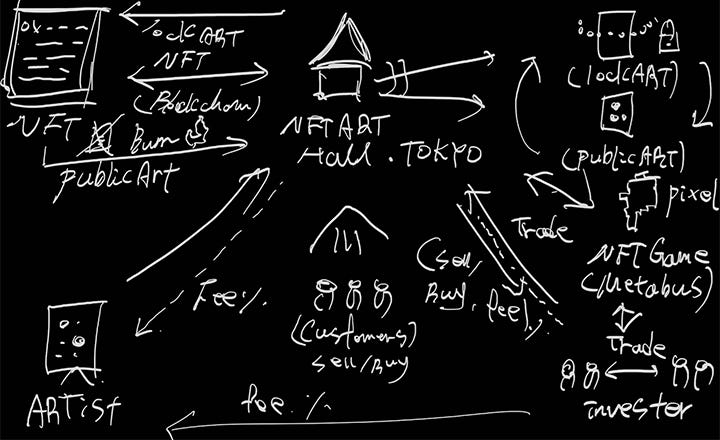 0x
lockART
NFT
(Blockchain)
NFT
Burn
publicArt
NFT ART
Hall . TOKYO
(lockART)
(publicART)
pixel
Trade
NFT Game
(Metabus)
Trade
investor
(sell/
Buy. fee%)
Fee:%
(Customers)
sell/Buy
ARTist
fee. %